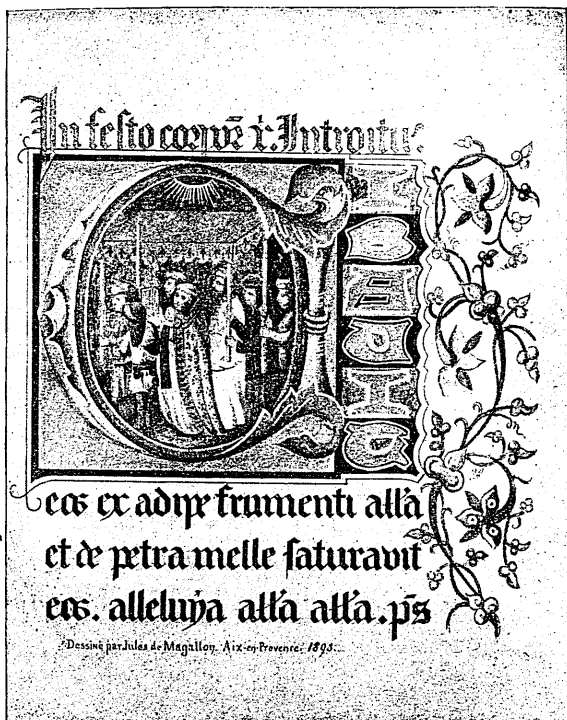 In festo Introitus
CIBAVIT
eos ex adipe frumenti all'a
et de petra melle saturavit
eos. alleluya all'a all'a. ps̄
Dessiné par Jules de Magallon. Aix-en-Provence. 1895.